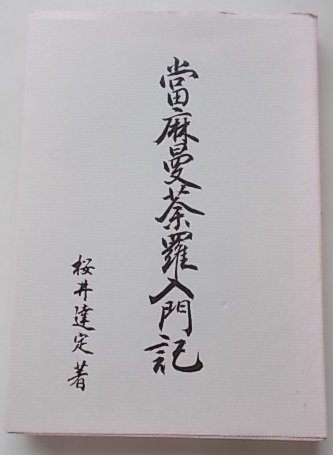 當麻曼荼羅入門記
桜井達定著